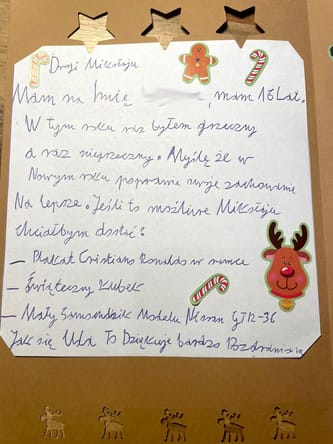 Drogi Mikołaju
Mam na Imię , mam 16 Lat.
W tym roku raz byłem grzeczny
a raz niegrzeczny. Myślę że w
Nowym roku poprawie swoje zachowanie
Na lepsze. Jeśli to możliwe Mikołaju
chciałbym dostać:
– Plakat Cristiano Ronaldo w ramce
– Świąteczny Kubek
– Mały Samochodzik Modelu Nissan GTR-36
Jak się Uda To Dziękuje bardzo Pozdrawiam